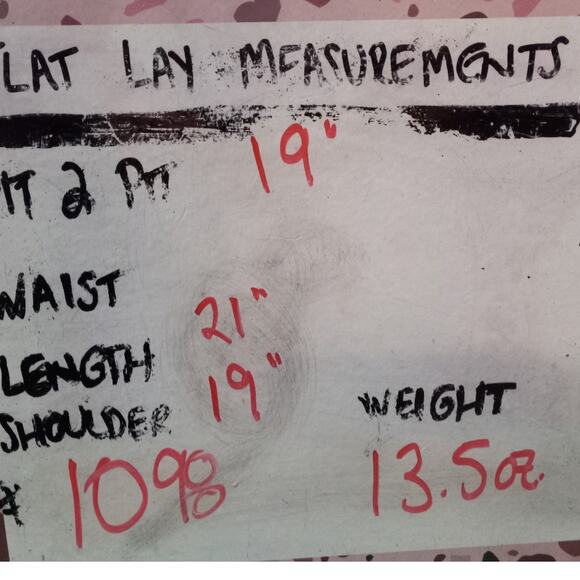 LAT LAY MEASUREMENTS
IT 2 PIT 19"
WAIST
LENGTH 21"
SHOULDER 19"
# 1090 WEIGHT 13.5oz.